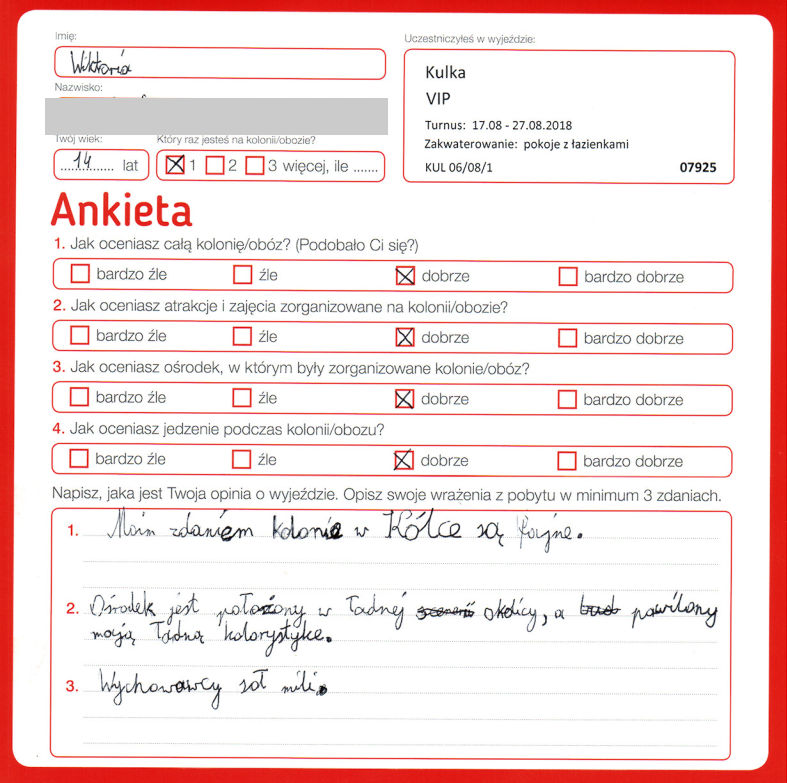 Imię:
Wiktoria
Nazwisko:
Twój wiek:
14 lat
Który raz jesteś na kolonii/obozie?
1 2 3 więcej, ile .......
Uczestniczyłeś w wyjeździe:
Kulka
VIP
Turnus: 17.08 - 27.08.2018
Zakwaterowanie: pokoje z łazienkami
KUL 06/08/1 07925
Ankieta
1. Jak oceniasz całą kolonię/obóz? (Podobało Ci się?)
bardzo źle źle dobrze bardzo dobrze
2. Jak oceniasz atrakcje i zajęcia zorganizowane na kolonii/obozie?
bardzo źle źle dobrze bardzo dobrze
3. Jak oceniasz ośrodek, w którym były zorganizowane kolonie/obóz?
bardzo źle źle dobrze bardzo dobrze
4. Jak oceniasz jedzenie podczas kolonii/obozu?
bardzo źle źle dobrze bardzo dobrze
Napisz, jaka jest Twoja opinia o wyjeździe. Opisz swoje wrażenia z pobytu w minimum 3 zdaniach.
1. Moim zdaniem kolonie w Kólce są fajne.
2. Ośrodek jest położony w ładnej okolicy, a pawilony
mają ładną kolorystykę.
3. Wychowawcy mili.